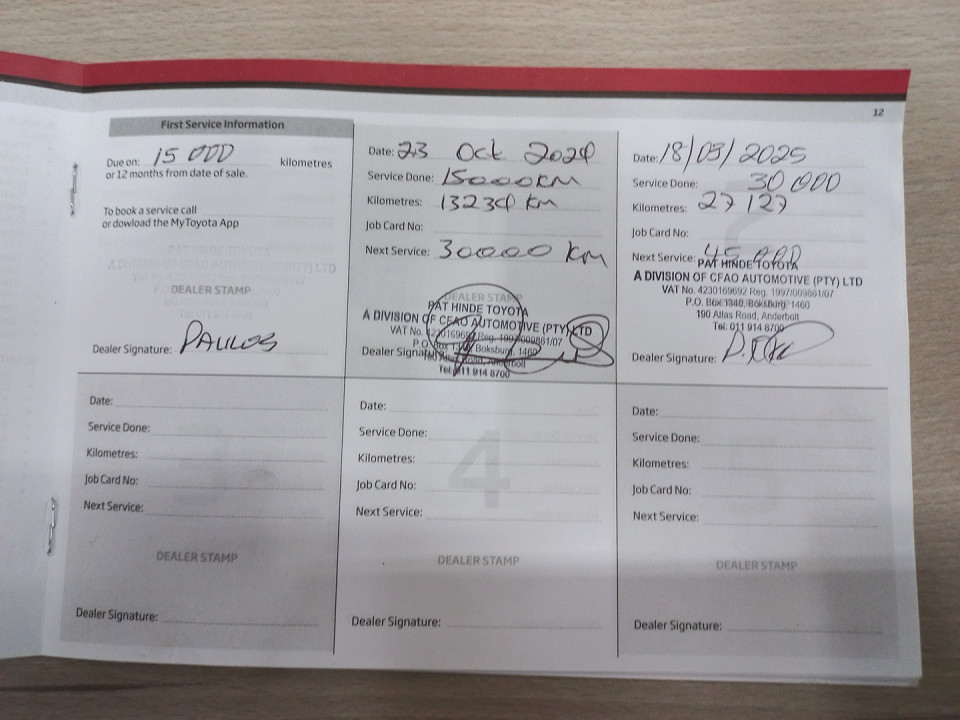 12
First Service Information
Due on: 15 000 kilometres
or 12 months from date of sale.
To book a service call
or dowload the MyToyota App
DEALER STAMP
Dealer Signature: PAULOS
Date: 23 Oct 2024
Service Done: 15000KM
Kilometres: 13234 KM
Job Card No:
Next Service: 30000 KM
DEALER STAMP
PAT HINDE TOYOTA
A DIVISION OF CFAO AUTOMOTIVE (PTY) LTD
VAT No. 4230169692 Reg. 1997/009861/07
P.O. Box 1340, Boksburg, 1460
Dealer Signature:
190 Atlas Road, Anderbolt
Tel: 011 914 8700
Date: 18/03/2025
Service Done: 30 000
Kilometres: 27 127
Job Card No:
Next Service: 45 000
PAT HINDE TOYOTA
A DIVISION OF CFAO AUTOMOTIVE (PTY) LTD
VAT No. 4230169692 Reg. 1997/009861/07
P.O. Box 1340, Boksburg, 1460
190 Atlas Road, Anderbolt
Tel: 011 914 8700
Dealer Signature:
Date:
Service Done:
Kilometres:
Job Card No:
Next Service:
DEALER STAMP
Dealer Signature:
4
Date:
Service Done:
Kilometres:
Job Card No:
Next Service:
DEALER STAMP
Dealer Signature:
Date:
Service Done:
Kilometres:
Job Card No:
Next Service:
DEALER STAMP
Dealer Signature: